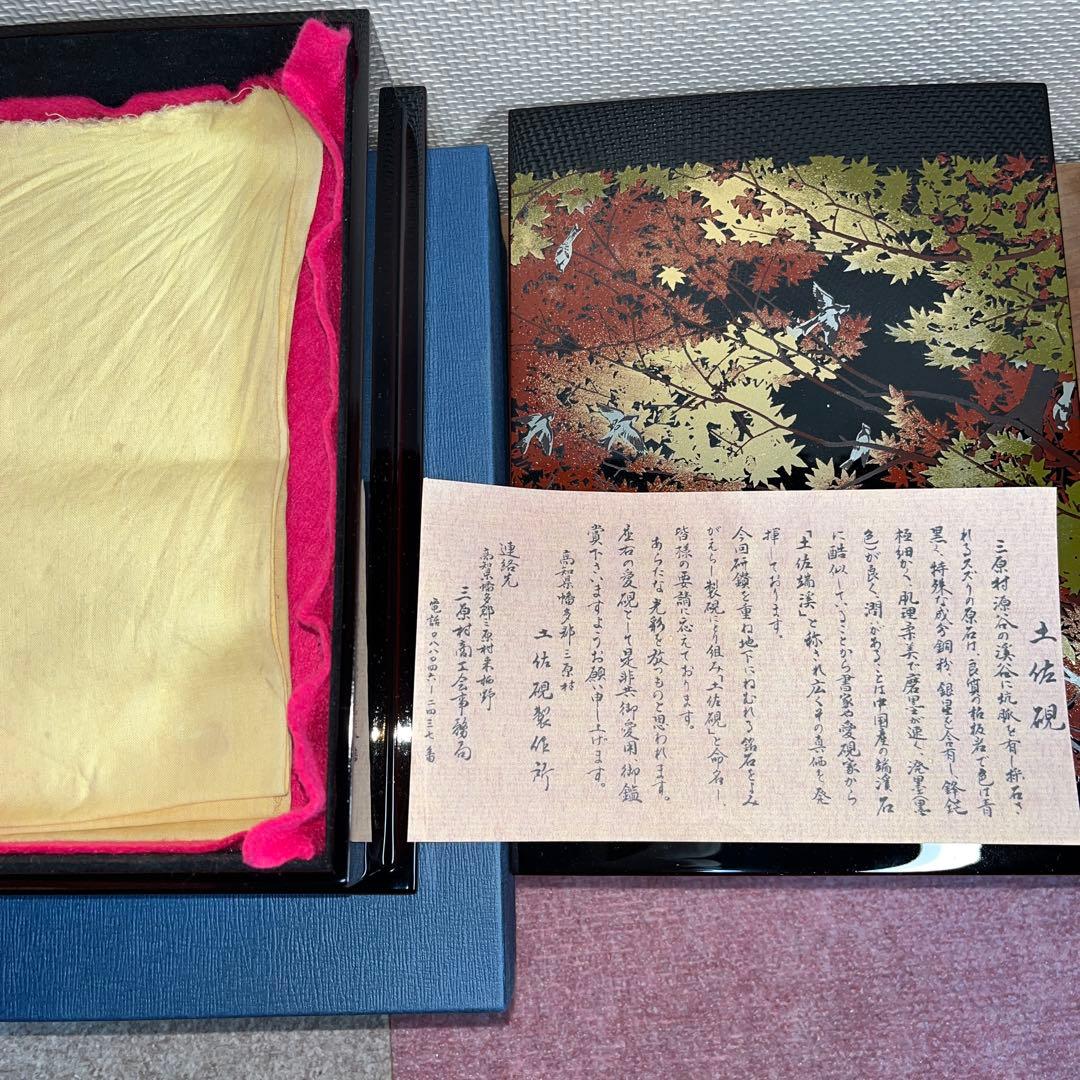 土佐硯
三原村源谷の渓谷に坑脈を有し採石さ
れるスズリの原石は、良質の粘板岩で色は青
黒く、特殊な成分銅粉、銀星を含有し鋒鋩
極細かく、肌理柔美で磨墨が速く、溌墨(墨
色)が良く、潤いがあることは中国産の端溪石
に酷似していることから書家や愛硯家から
「土佐端溪」と称され広くその真価を発
揮しております。
今回研鑽を重ね地下にねむれる銘石をよみ
がえらし製硯にとり組み「土佐硯」と命名し、
皆様の要請に応えております。
あらたな光彩を放つものと思われます。
座右の愛硯として是非共御愛用、御鑑
賞下さいますようお願い申し上げます。
高知県幡多郡三原村
土佐硯製作所
連絡先
高知県幡多郡三原村来栖野
三原村商工会事務局
電話〇八八〇四六―二四三七番